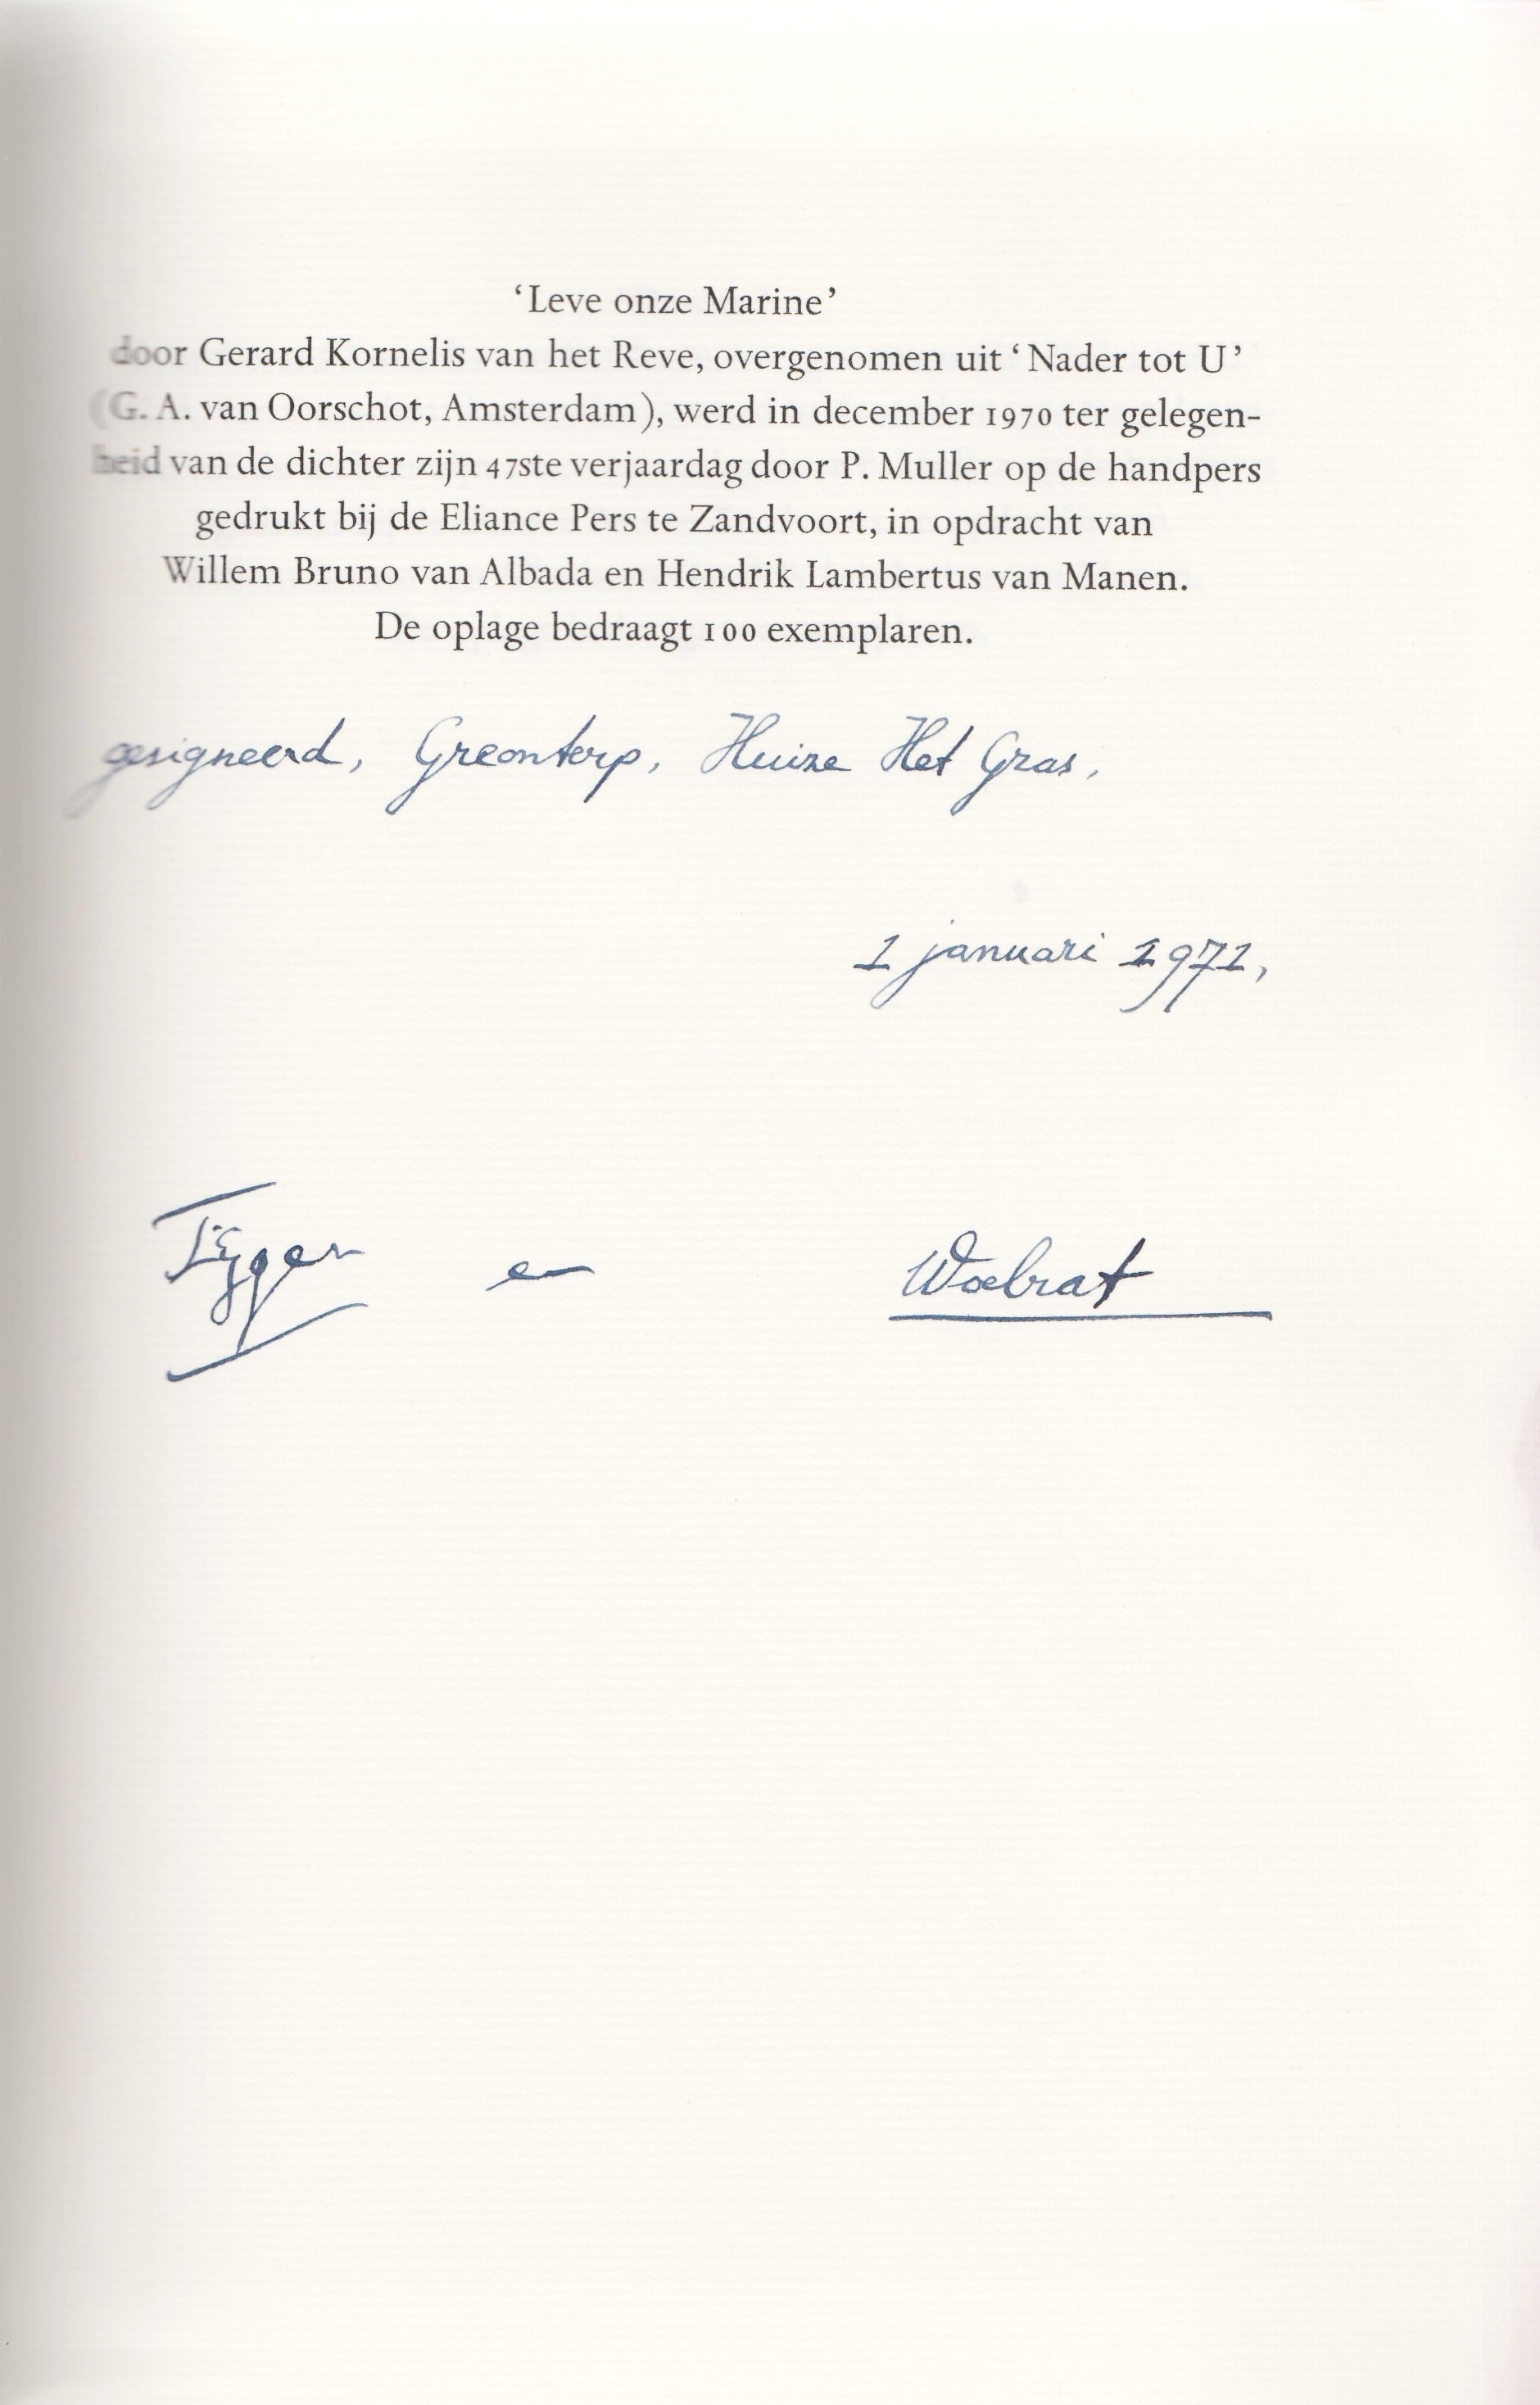 ‘Leve onze Marine’
door Gerard Kornelis van het Reve, overgenomen uit ‘Nader tot U’
(G. A. van Oorschot, Amsterdam), werd in december 1970 ter gelegen-
heid van de dichter zijn 47ste verjaardag door P. Muller op de handpers
gedrukt bij de Eliance Pers te Zandvoort, in opdracht van
Willem Bruno van Albada en Hendrik Lambertus van Manen.
De oplage bedraagt 100 exemplaren.
gesigneerd, Greonterp, Huize Het Gras,
1 januari 1971,
Tijger en Woelrat